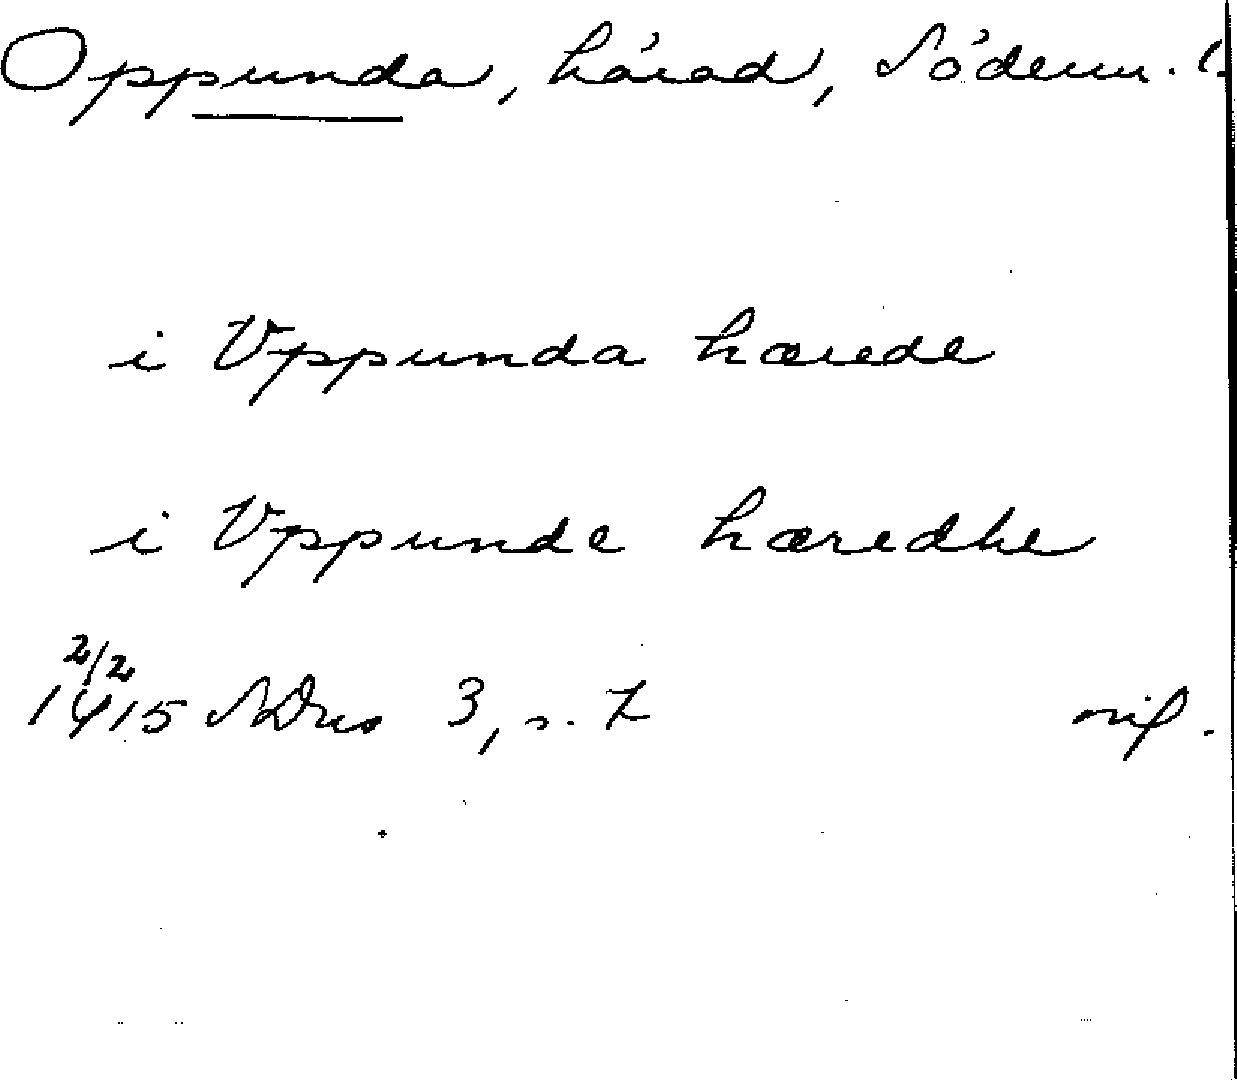 Oppunda, härad, Söderm. l
i Vppunda hærede
i Vppunde hæredhe
2/2
1415 SDns 3, s. 7 orig.